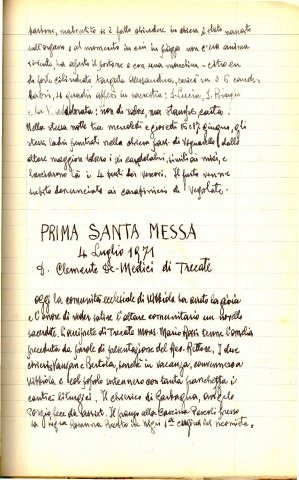 parroco, malvestito si è fatto chiudere in chiesa, è stato nascosto
sull'organo e al momento in cui in piazza non c'era anima
vivente, ha aperto il portone e con una macchina - oltre
di forte cilindrata targata Alessandria, caricò 6 cande-
labri, 4 quadri appesi in sacrestia: S. Lucia, S.
e la V. Addolorata: non di valore, ma stampe carta.
Nella stessa notte tra mercoledì e giovedì 16-17 giugno, gli
stessi ladri penetrati nella chiesa parr. di Vignarello dallo
altare maggiore tolsero i sei candelabri, simili ai miei, e
lasciarono là i 4 furti dei nostri. Il fatto venne
subito denunciato ai carabinieri di Vespolate.
PRIMA SANTA MESSA
4 Luglio 1971
D. Clemente De-Medici di Trecate
Oggi la comunità ecclesiale di Nibbiola ha avuto la gioia
e l'onore di veder salire l'altare comunitario un novello
sacerdote. L'Arciprete di Trecate Mons. Mario Rossi tenne l'omelia
preceduta da parole di presentazione del Rev. Rettore. I due
chierici e Bertola, perché in vacanza, convennero a
Nibbiola e col popolo intonarono con tanta franchezza i
cantici liturgici. Il chierico di Garbagna, Angelo
fece da lettore. Il pranzo alla Cascina Pascoli presso
la sig.ra Rosanna 1ª cugina del neomista.